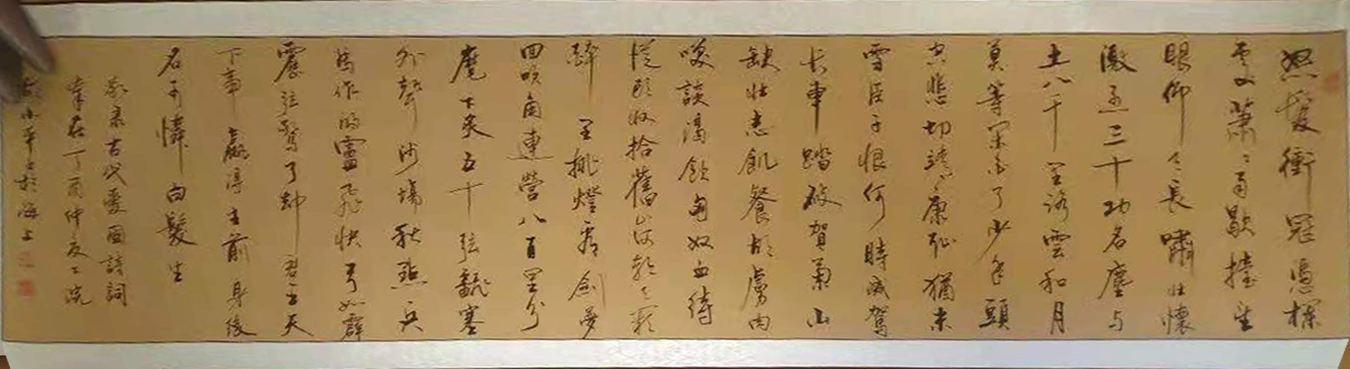 怒髮衝冠憑欄
處蕭〻雨歇擡望
眼仰天長嘯壯懷
激烈三十功名塵與
土八千里路雲和月
莫等閑白了少年頭
空悲切靖康恥猶未
雪臣子恨何時滅駕
長車踏破賀蘭山
缺壯志飢餐胡虜肉
笑談渴飲匈奴血待
從頭收拾舊山河朝天闕
醉里挑燈看劍夢
回吹角連營八百里分
麾下炙五十弦翻塞
外聲沙場秋點兵
馬作的盧飛快弓如霹
靂弦驚了卻君王天
下事贏得生前身後
名可憐白髮生
录古代愛國詩詞
歲在丁酉仲夏上浣
小平書於海上